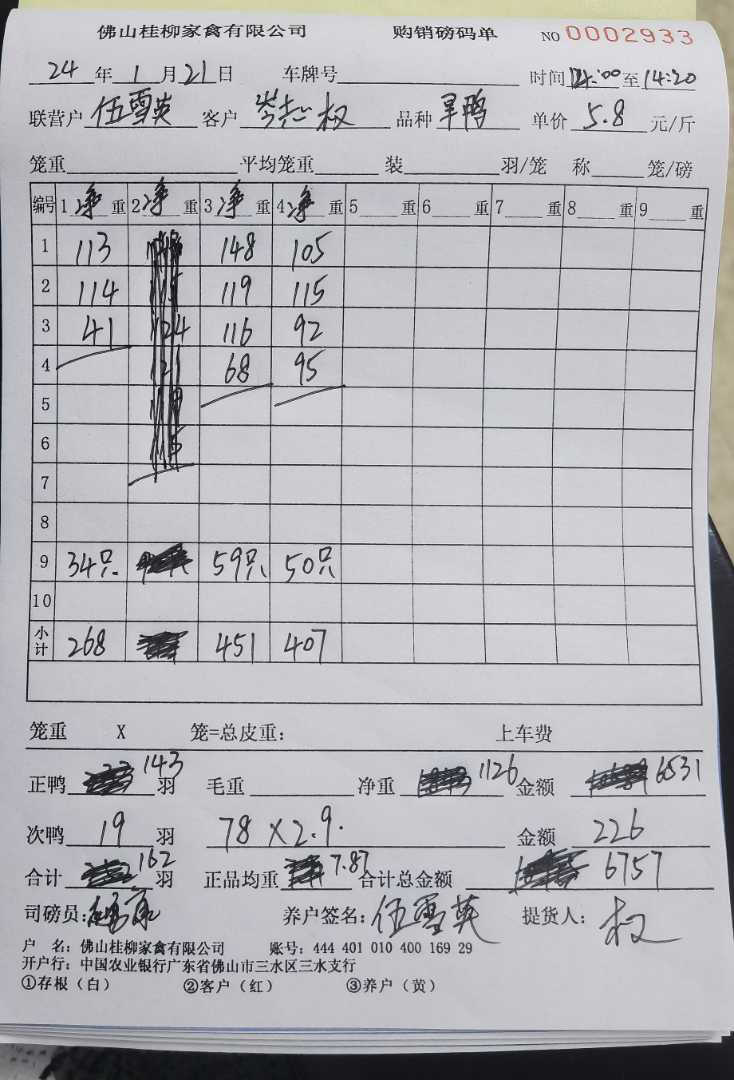 佛山桂柳家禽有限公司 购销磅码单 NO 0002933
24年1月21日 车牌号 时间 14:00至14:20
联营户 伍雪英 客户 岑志权 品种 旱鸭 单价 5.8 元/斤
笼重 平均笼重 装 羽/笼 称 笼/磅
编号 1净重 2净重 3净重 4净重 5 重 6 重 7 重 8 重 9 重
1 113 148 105
2 114 119 115
3 41 124 116 92
4 121 68 95
5
6
7
8
9 34只 59只 50只
10
小计 268 451 407
笼重 X 笼=总皮重: 上车费
正鸭 143 羽 毛重 净重 1126 金额 6531
次鸭 19 羽 78×2.9. 金额 226
合计 162 羽 正品均重 7.87 合计总金额 6757
司磅员: 养户签名: 伍雪英 提货人: 权
户 名: 佛山桂柳家禽有限公司 账号: 444 401 010 400 169 29
开户行: 中国农业银行广东省佛山市三水区三水支行
①存根(白) ②客户(红) ③养户(黄)